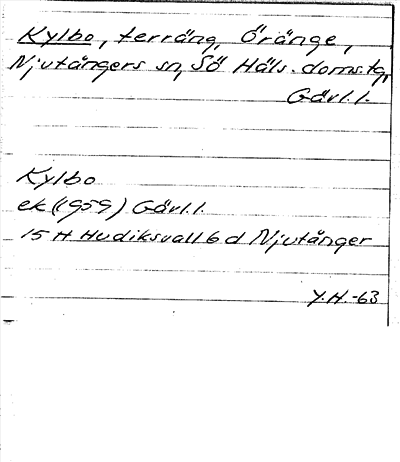 Kylbo, terräng, Öränge,
Njutångers sn, Sö Häls. doms.tg,
Gävl.l.
Kylbo
ek (1959) Gävl.l.
15 H Hudiksvall 6 d Njutånger
Y.H.-63